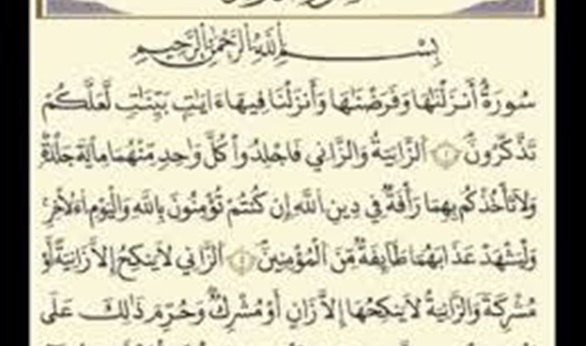 بِسْمِ اللَّهِ الرَّحْمَٰنِ الرَّحِيمِ
سُورَةٌ أَنزَلْنَٰهَا وَفَرَضْنَٰهَا وَأَنزَلْنَا فِيهَآ ءَايَٰتٍۭ بَيِّنَٰتٍ لَّعَلَّكُمْ
تَذَكَّرُونَ ۝١ ٱلزَّانِيَةُ وَٱلزَّانِي فَٱجْلِدُوا۟ كُلَّ وَٰحِدٍ مِّنْهُمَا مِا۟ئَةَ جَلْدَةٍ
وَلَا تَأْخُذْكُم بِهِمَا رَأْفَةٌ فِي دِينِ ٱللَّهِ إِن كُنتُمْ تُؤْمِنُونَ بِٱللَّهِ وَٱلْيَوْمِ ٱلْءَاخِرِ
وَلْيَشْهَدْ عَذَابَهُمَا طَآئِفَةٌ مِّنَ ٱلْمُؤْمِنِينَ ۝٢ ٱلزَّانِي لَا يَنكِحُ إِلَّا زَانِيَةً أَوْ
مُشْرِكَةً وَٱلزَّانِيَةُ لَا يَنكِحُهَآ إِلَّا زَانٍ أَوْ مُشْرِكٌ وَحُرِّمَ ذَٰلِكَ عَلَى